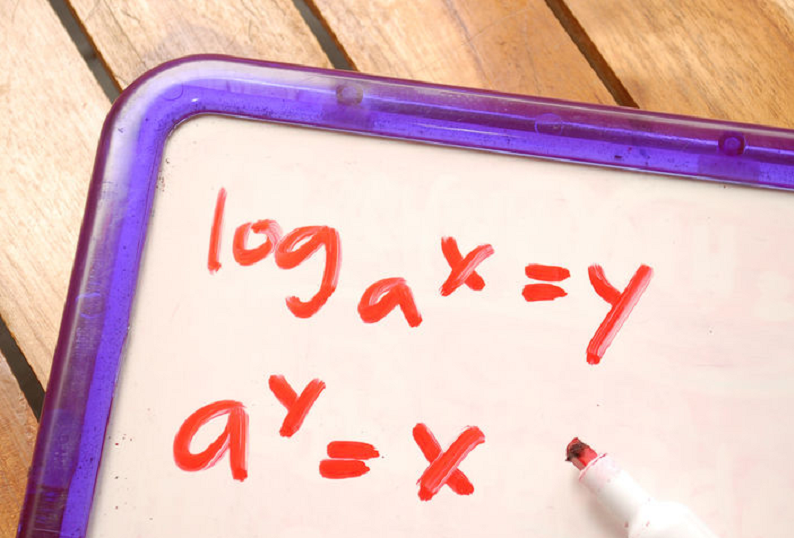 logₐ x = y
aʸ = x